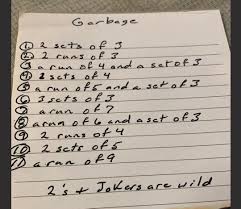 Garbage
① 2 sets of 3
② 2 runs of 3
③ a run of 4 and a set of 3
④ 2 sets of 4
⑤ a run of 5 and a set of 3
⑥ 3 sets of 3
⑦ a run of 7
⑧ a run of 6 and a set of 3
⑨ 2 runs of 4
⑩ 2 sets of 5
⑪ a run of 9
2's + Jokers are wild